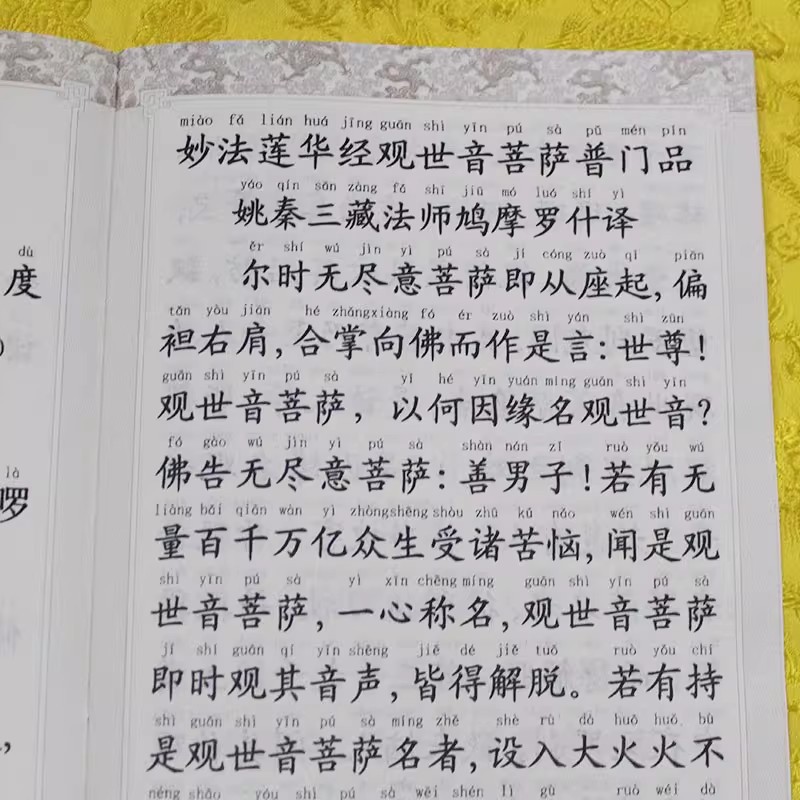 miào fǎ lián huá jīng guān shì yīn pú sà pǔ mén pǐn
妙法莲华经观世音菩萨普门品
yáo qín sān zàng fǎ shī jiū mó luó shí yì
姚秦三藏法师鸠摩罗什译
ěr shí wú jìn yì pú sà jí cóng zuò qǐ piān
尔时无尽意菩萨即从座起,偏
tǎn yòu jiān hé zhǎng xiàng fó ér zuò shì yán shì zūn
袒右肩,合掌向佛而作是言:世尊!
guān shì yīn pú sà yǐ hé yīn yuán míng guān shì yīn
观世音菩萨,以何因缘名观世音?
fó gào wú jìn yì pú sà shàn nán zǐ ruò yǒu wú
佛告无尽意菩萨:善男子!若有无
liàng bǎi qiān wàn yì zhòng shēng shòu zhū kǔ nǎo wén shì guān
量百千万亿众生受诸苦恼,闻是观
shì yīn pú sà yì xīn chēng míng guān shì yīn pú sà
世音菩萨,一心称名,观世音菩萨
jí shí guān qí yīn shēng jiē dé jiě tuō ruò yǒu chí
即时观其音声,皆得解脱。若有持
shì guān shì yīn pú sà míng zhě shè rù dà huǒ huǒ bù
是观世音菩萨名者,设入大火火不
néng shāo yóu shì pú sà wēi shén lì gù ruò wéi dà
dù
度
là
啰